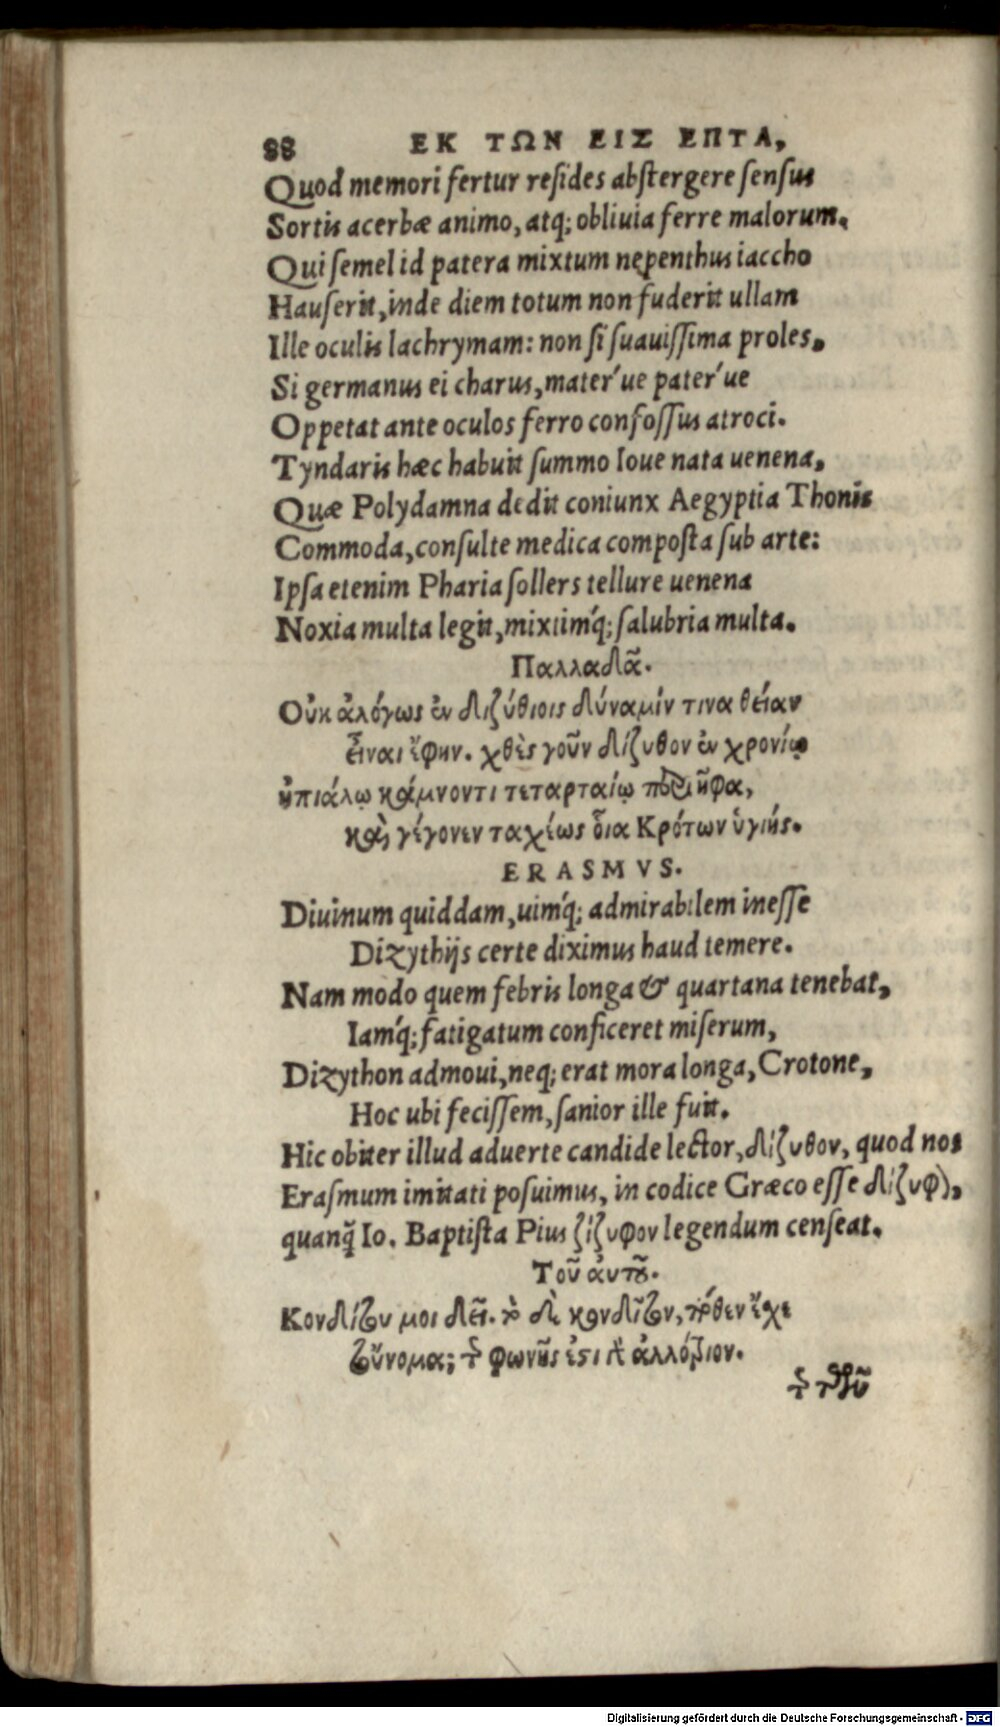 88 ΕΚ ΤΩΝ ΕΙΣ ΕΠΤΑ,
Quod memori fertur resides abstergere sensus
Sortis acerbæ animo, atq; obliuia ferre malorum.
Qui semel id patera mixtum nepenthus iaccho
Hauserit, inde diem totum non fuderit ullam
Ille oculis lachrymam: non si suauissima proles,
Si germanus ei charus, mater'ue pater'ue
Oppetat ante oculos ferro confossus atroci.
Tyndaris hæc habuit summo Ioue nata uenena,
Quæ Polydamna dedit coniunx Aegyptia Thonis
Commoda, consulte medica composta sub arte:
Ipsa etenim Pharia sollers tellure uenena
Noxia multa legit, mixtimq́; salubria multa.
Παλλαδᾶ.
Οὐκ ἀλόγως ἐν διζύθιοις δύναμίν τινα θείαν
εἶναι ἔφην. χθὲς γοῦν δίζυθον ἐν χρονίῳ
ἠπιάλῳ κάμνοντι τεταρταίῳ περιῆψα,
καὶ γέγονεν ταχέως οἷα Κρότων ὑγιής.
ERASMVS.
Diuinum quiddam, uimq́; admirabilem inesse
Dizythijs certe diximus haud temere.
Nam modo quem febris longa & quartana tenebat,
Iamq́; fatigatum conficeret miserum,
Dizython admoui, neq; erat mora longa, Crotone,
Hoc ubi fecissem, sanior ille fuit.
Hic obiter illud aduerte candide lector, δίζυθον, quod nos
Erasmum imitati posuimus, in codice Græco esse δίζυφ),
quanq̃ Io. Baptista Pius ζίζυφον legendum censeat.
Τοῦ ἀυτοῦ.
Κονδίτου μοι δεῖ. τὸ δὲ κονδῖτον, πόθεν ἔχε
τοὔνομα; τῆς φωνῆς ἐστι γὰρ ἀλλότριον.
τῆς τῶν
Digitalisierung gefördert durch die Deutsche Forschungsgemeinschaft - DFG